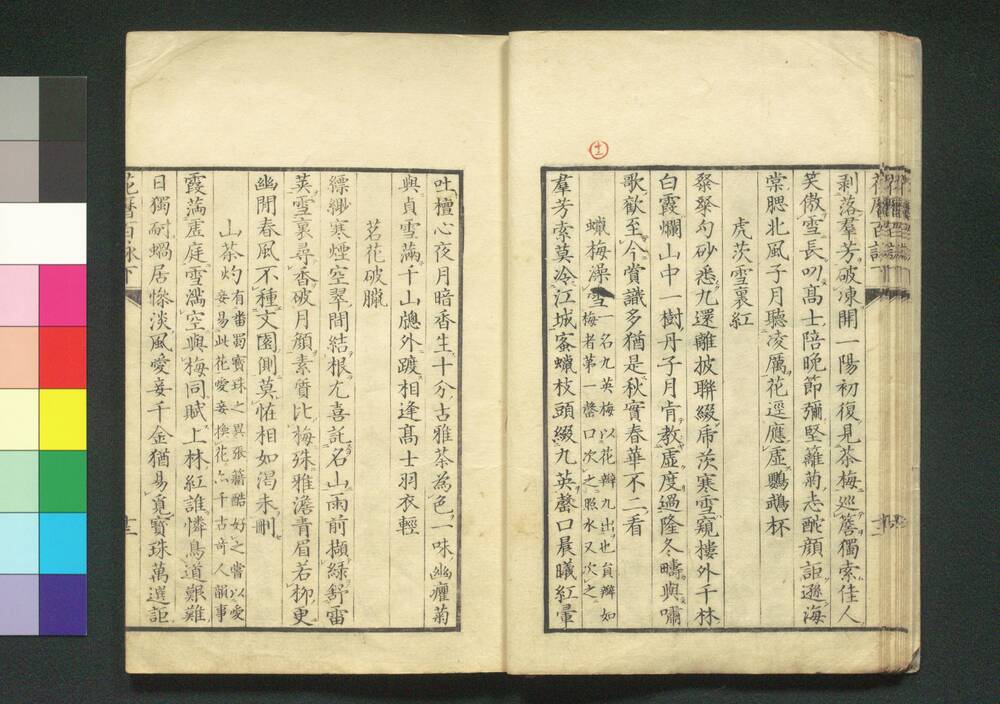 剥落羣芳破凍開一陽初復見茶梅巡簷獨索佳人
笑傲雪長叨髙士陪晩節彌堅籬菊志酡顔詎遜海
棠腮北風子月聽凌厲花逕應虚鸚鵡杯
虎茨雪裏紅
發㸚勺砂悉九還離披聯綴虎茨寒雪窺樓外千林
白霞爛山中一樹丹子月肯教虚度過隆冬疇與嘯
歌歓至今賞識多猶是秋實春華不二看
蠟梅澡雪一名九英梅以花瓣九出也貟瓣如
梅者第一罄口次之照水又次之
羣芳索莫冷江城蜜蠟枝頭綴九英罄口晨曦紅暈
十二
吐檀心夜月暗香生十分古雅茶為色一味幽癯菊
與貞雪滿千山牕外踱相逢髙士羽衣輕
茗花破臘
縹緲寒煙空翠間結根尤喜託名山雨前擷綠舒雷
莢雪裏尋香破月顔素質比梅殊雅澹青眉若栁更
幽閒春風不種文園側莫恠相如渴未刪
山茶灼有番蜀寳珠之異張籍酷好之嘗以愛
妾易此花愛妾換花亦千古奇人韻事
霞滿蓬庭雪滿空與梅同賦上林紅誰憐鳥道艱難
日獨耐蝸居慘淡風愛妾千金猶易覓寳珠萬選詎
花暦百詠下
十三